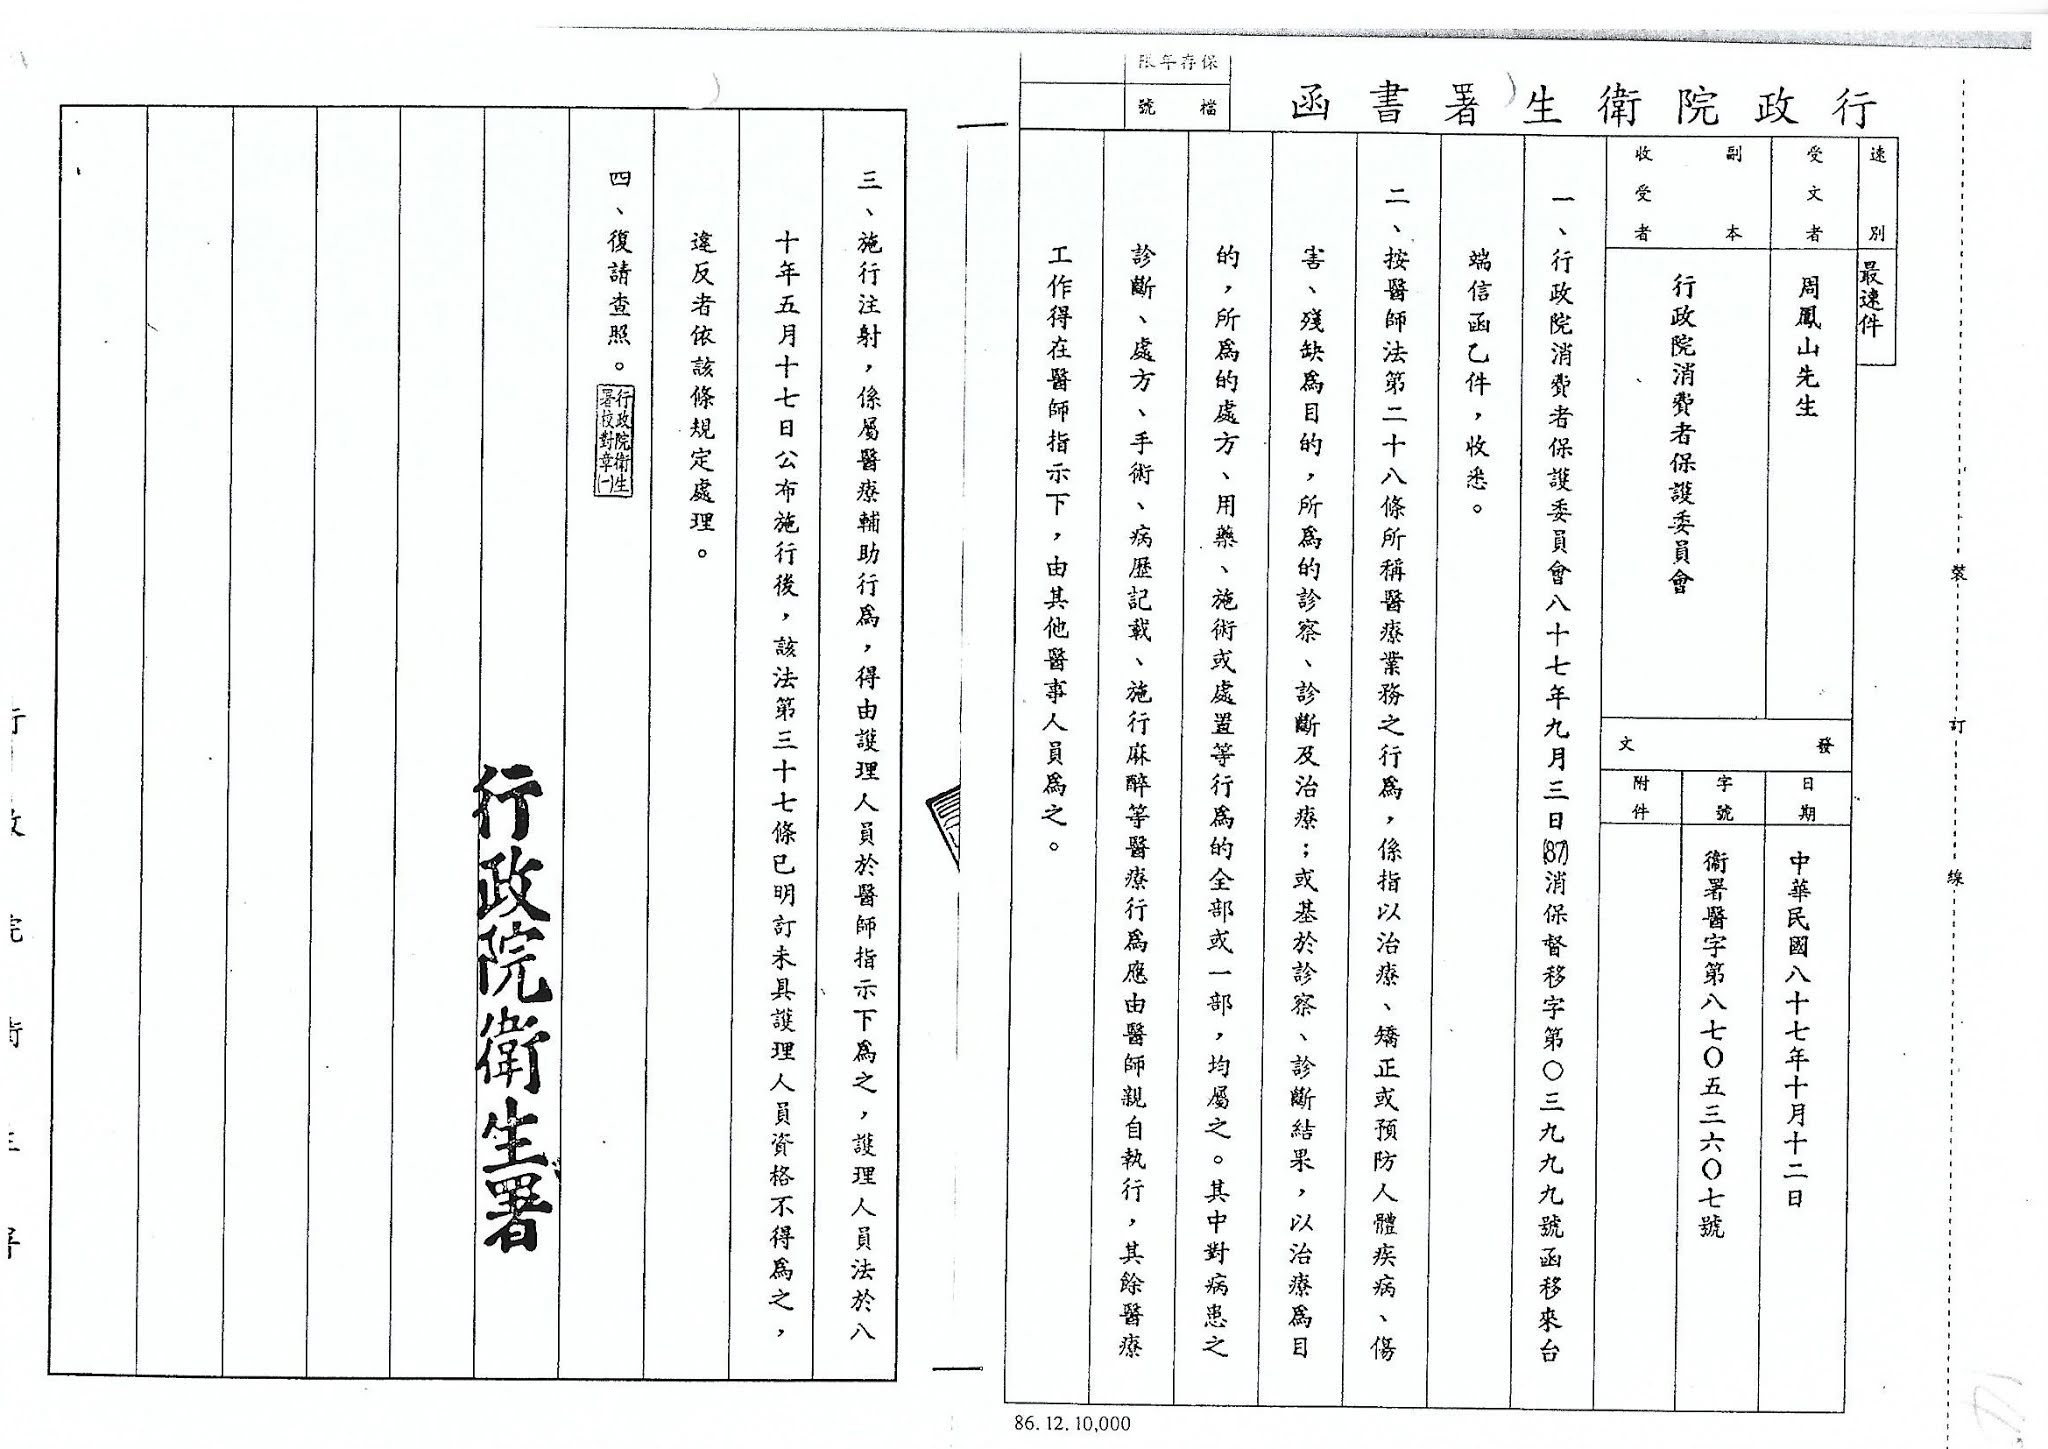 保存年限
檔號
行政院衛生署書函
速別
最速件
受文者
周鳳山先生
副本收受者
行政院消費者保護委員會
發文
日期
中華民國八十七年十月十二日
字號
衛署醫字第八七〇五三六〇七號
附件
一、行政院消費者保護委員會八十七年九月三日(87)消保督移字第〇三九九九號函移來台
端信函乙件，收悉。
二、按醫師法第二十八條所稱醫療業務之行為，係指以治療、矯正或預防人體疾病、傷
害、殘缺為目的，所為的診察、診斷及治療；或基於診察、診斷結果，以治療為目
的，所為的處方、用藥、施術或處置等行為的全部或一部，均屬之。其中對病患之
診斷、處方、手術、病歷記載、施行麻醉等醫療行為應由醫師親自執行，其餘醫療
工作得在醫師指示下，由其他醫事人員為之。
裝
訂
線
86.12.10,000
三、施行注射，係屬醫療輔助行為，得由護理人員於醫師指示下為之，護理人員法於八
十年五月十七日公布施行後，該法第三十七條已明訂未具護理人員資格不得為之，
違反者依該條規定處理。
四、復請查照。
行政院衛生
署校對章(一)
行政院衛生署